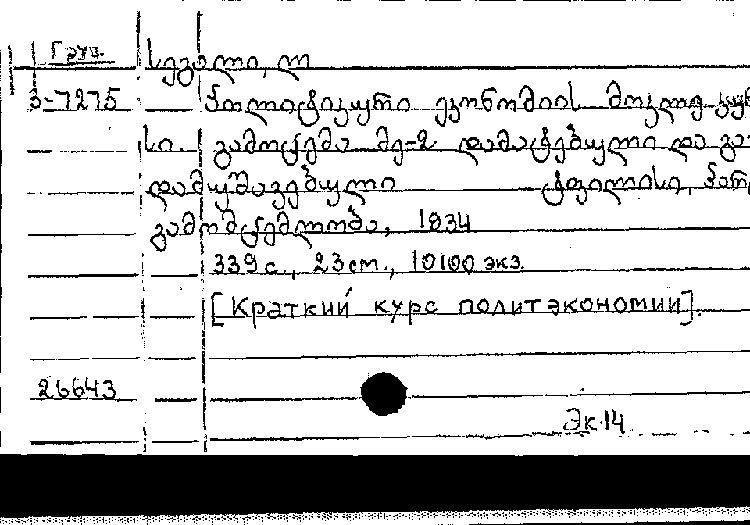 Груз. სეგალი, ლ
პ-7275 პოლიტიკური ეკონომიის მოკლე კურ
სი. გამოცემა მე-2 დამატებული და გა
დამუშავებული ტფილისი, პარტ
გამომცემლობა, 1934
339 с., 23 см., 10100 экз.
[Краткий курс политэкономии].
26643
Эк 14